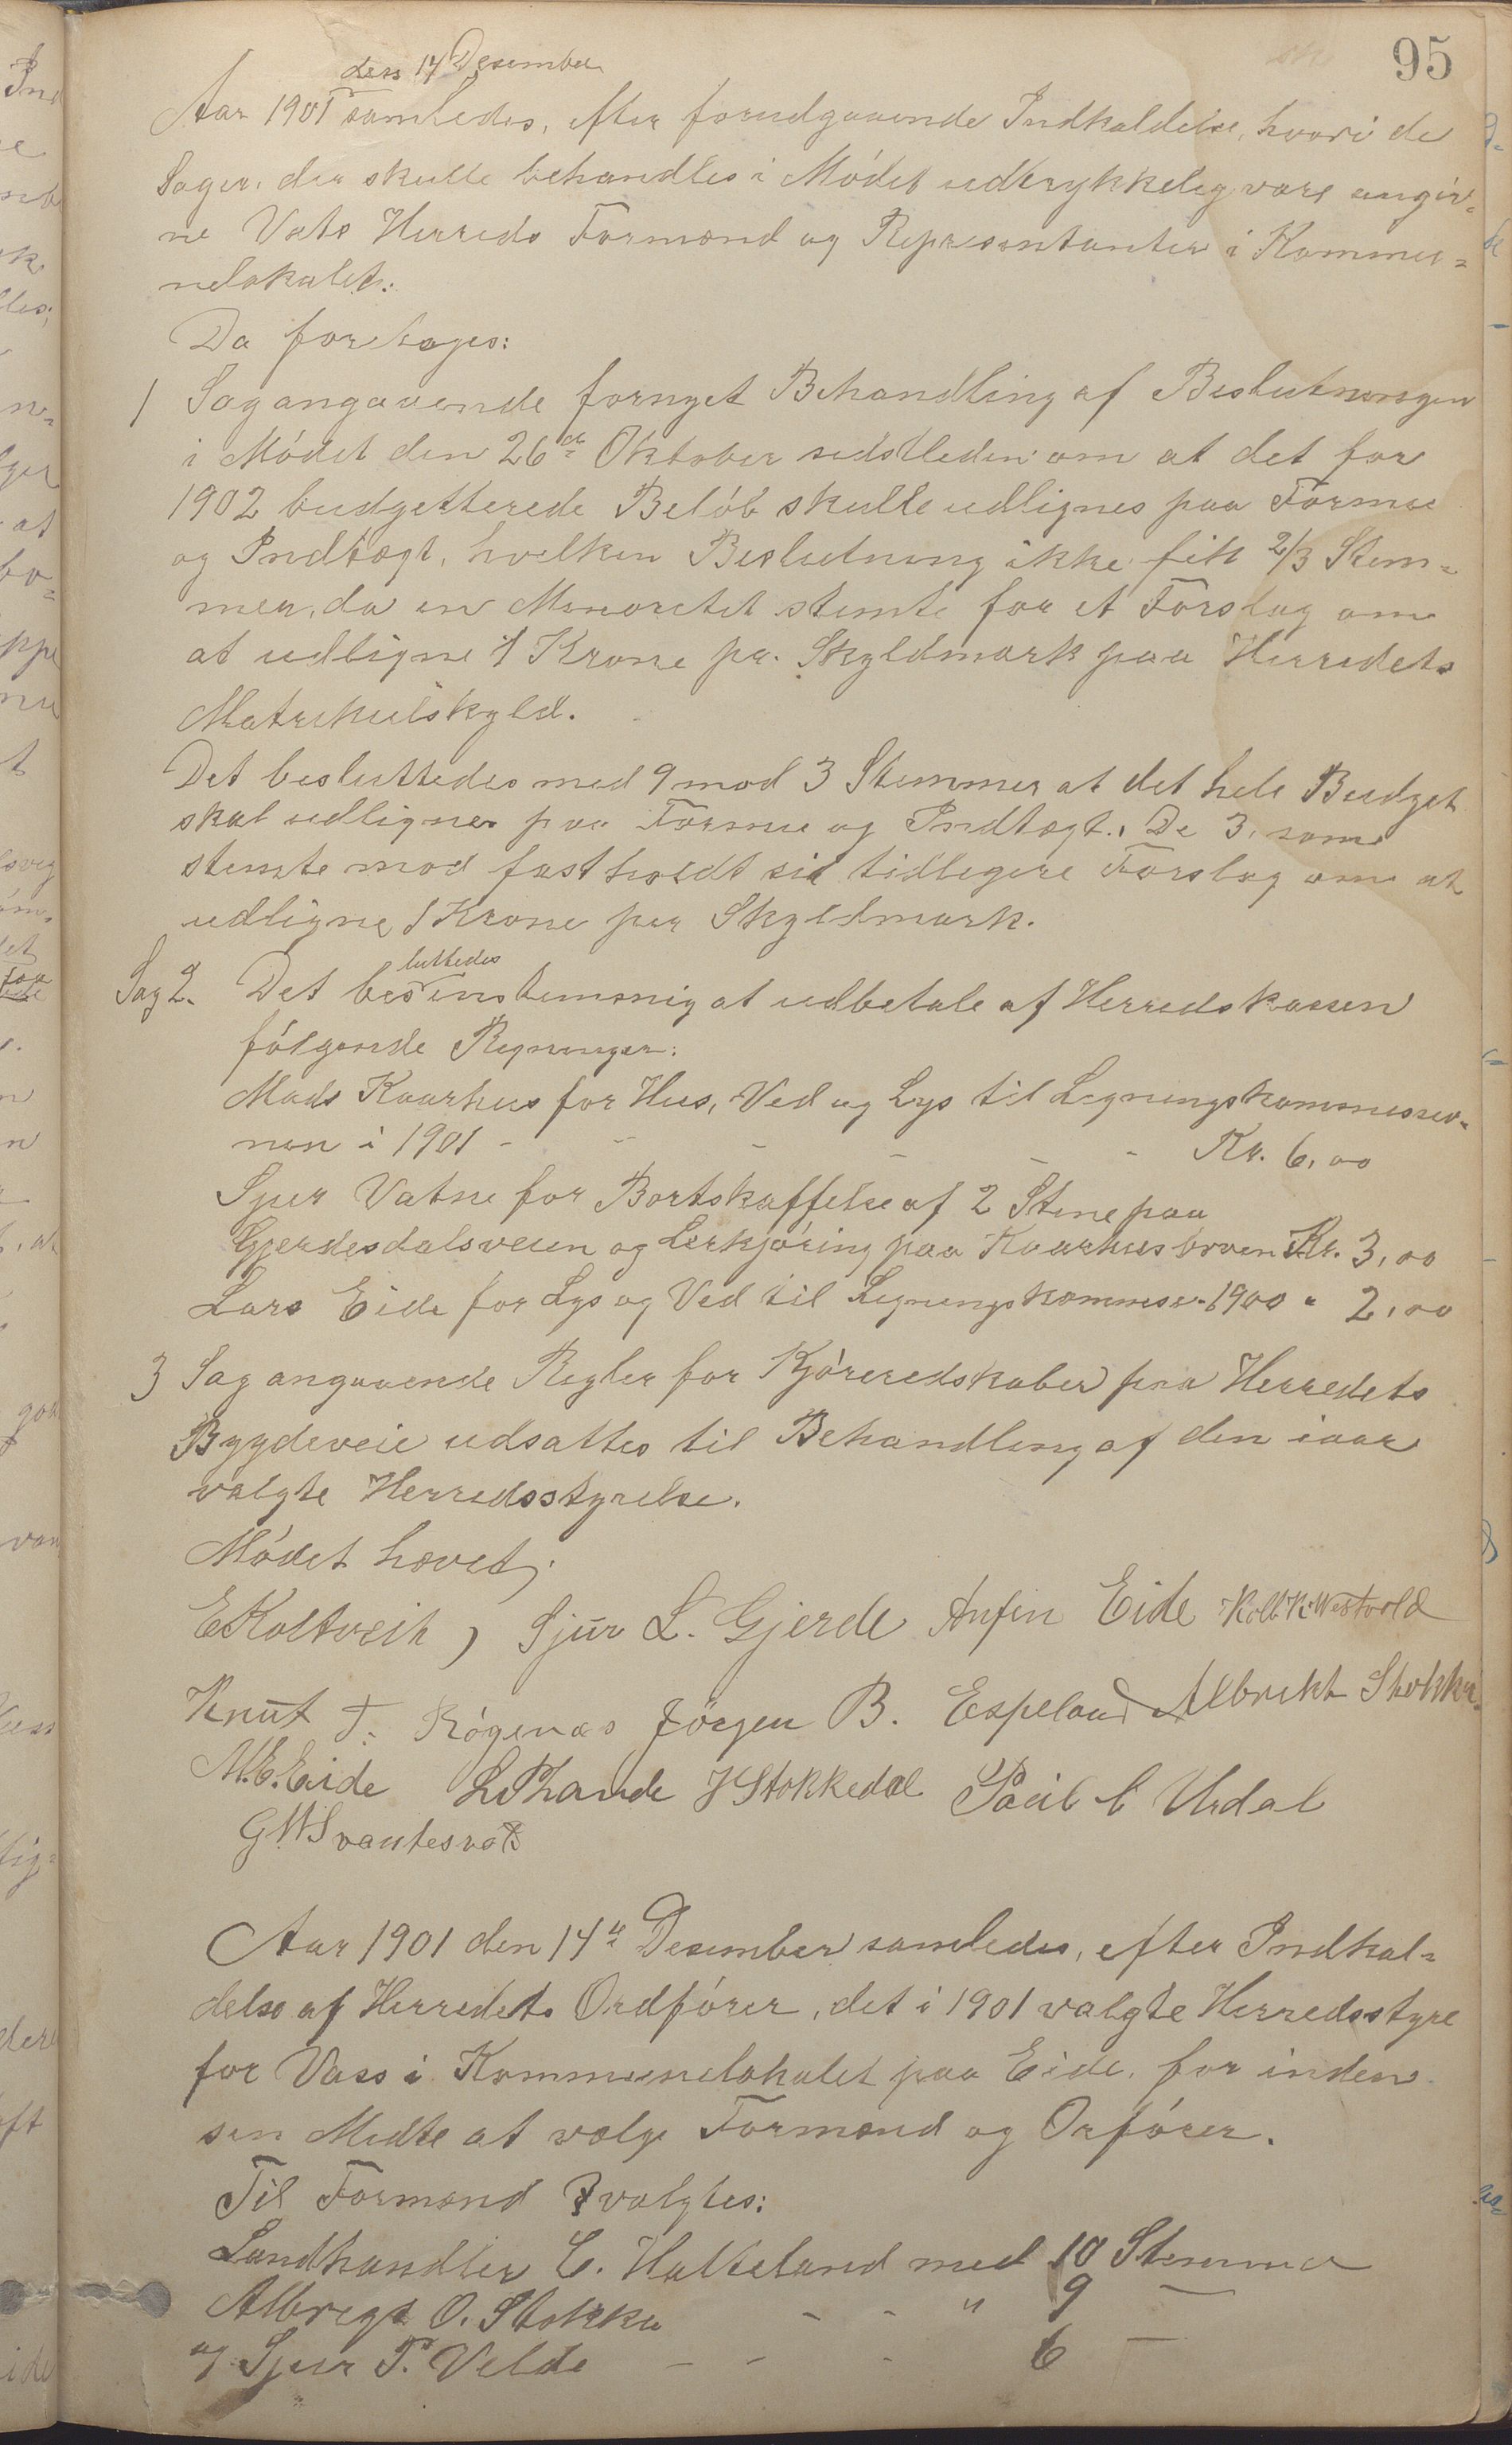 95
den 14 Desember
Aar 1901 samledes, efter forudgaaende Indkaldelse, hvori de
Sager, der skulle behandles i Mödet udtrykkelig vare angiv=
ne Vats Herreds Formænd og Repræsentanter i Kommu=
nelokalet:
Da foretoges:
1 Sag angaaende fornyet Behandling af Beslutningen
i Mödet den 26de Oktober sidstleden om at det for
1902 budgetterede Belöb skulle udlignes paa Formue
og Indtægt, hvilken Beslutning ikke fik 2/3 Stem=
mer, da en Minoritet stemte for et Forslag om
at udligne 1 Krone pr. Skyldmark paa Herredets
Matrikulskyld.
Det besluttedes med 9 mod 3 Stemmer at det hele Budget
skal udlignes paa Formue og Indtægt. De 3, som
stemte mod fastholdt sit tidligere Forslag om at
udligne 1 Krone per Skyldmark.
luttedes
Sag 2. Det bes enstemmig at udbetale af Herredskassen
fölgende Regninger:
Mads Kaarhus for Hus, Ved og Lys til Ligningskommissio=
nen i 1901 - - - - - - Kr. 6,00
Sjur Vatne for Bortskaffelse af 2 Stene paa
Gjerdesdalsveien og Lerkjöring paa Kaarhusbroen Kr. 3,00
Lars Eide for Lys og Ved til Ligningskommiss. 1900 " 2,00
3 Sag angaaende Regler for Kjöreredskaber paa Herredets
Bygdeveie udsattes til Behandling af den iaar
valgte Herredsstyrelse.
Mödet hævet.
E Koltveit, Sjur L. Gjerde Anfin Eide Kolb. K. Westvold
Knut T. Rögenæs Jörgen B. Espeland Albrikt Stokka
M.E. Eide L P Lande J Stokkedal Poul C Urdal
G W Svantesvat
Aar 1901 den 14de Desember samledes, efter Indkal=
delse af Herredets Ordförer, det i 1901 valgte Herredsstyre
for Vass i Kommunelokalet paa Eide, for inden
sin Midte at vælge Formænd og Orförer.
Til Formænd valgtes:
Landhandler C. Hatteland med 10 Stemmer
Albregt O. Stokka - - " 9 —
og Sjur P. Velde - - - 6 —